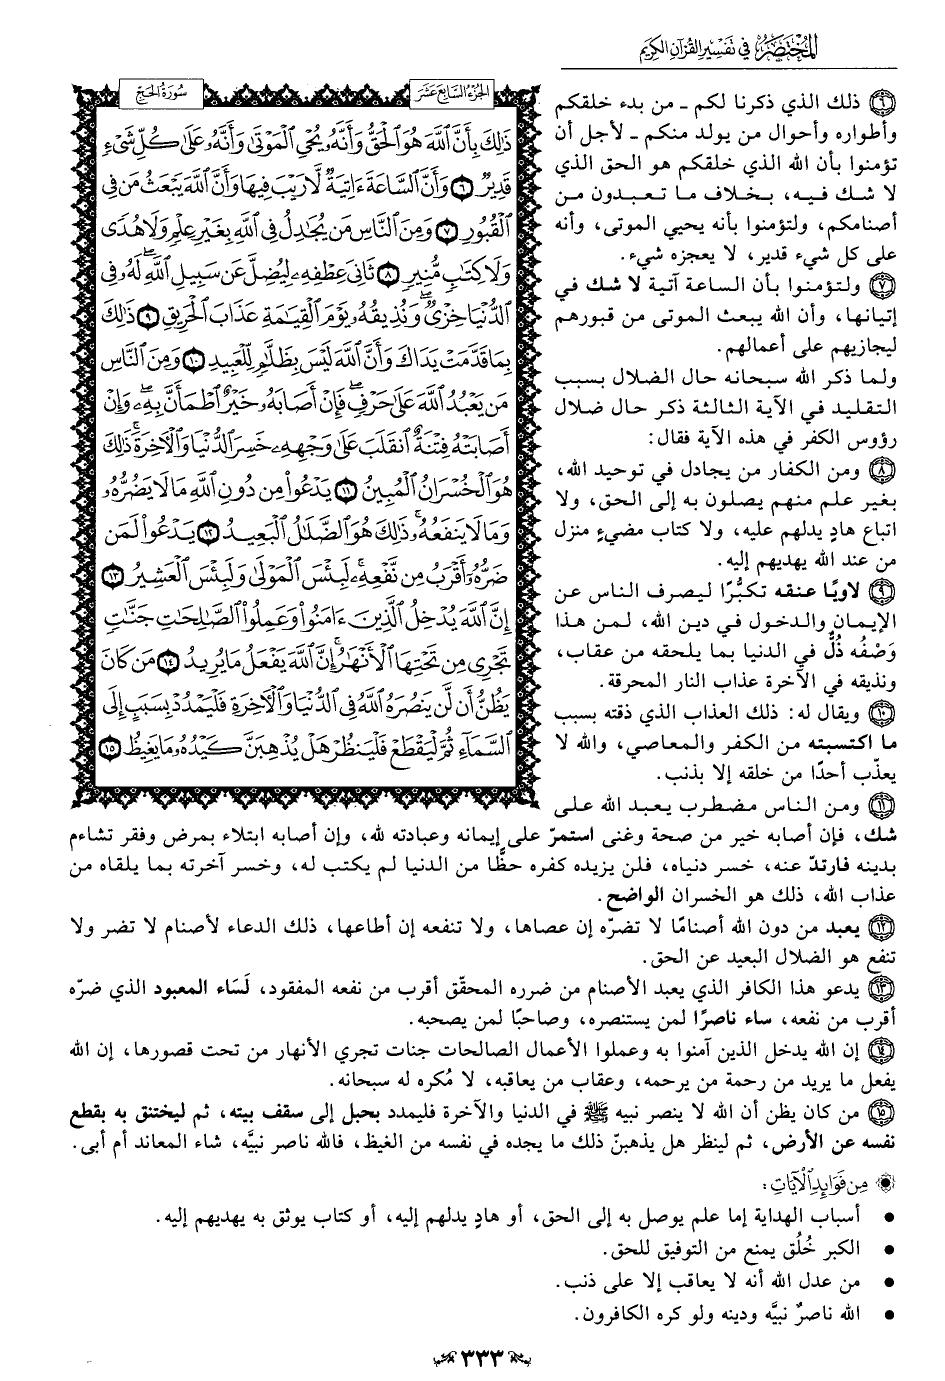 المختصر في تفسير القرآن الكريم
الجزء السابع عشر
سورة الحج
ذَٰلِكَ بِأَنَّ ٱللَّهَ هُوَ ٱلْحَقُّ وَأَنَّهُۥ يُحْىِ ٱلْمَوْتَىٰ وَأَنَّهُۥ عَلَىٰ كُلِّ شَىْءٍ
قَدِيرٌ ٦ وَأَنَّ ٱلسَّاعَةَ ءَاتِيَةٌ لَّا رَيْبَ فِيهَا وَأَنَّ ٱللَّهَ يَبْعَثُ مَن فِى
ٱلْقُبُورِ ٧ وَمِنَ ٱلنَّاسِ مَن يُجَٰدِلُ فِى ٱللَّهِ بِغَيْرِ عِلْمٍ وَلَا هُدًى
وَلَا كِتَٰبٍ مُّنِيرٍ ٨ ثَانِىَ عِطْفِهِۦ لِيُضِلَّ عَن سَبِيلِ ٱللَّهِ ۖ لَهُۥ فِى
ٱلدُّنْيَا خِزْىٌ ۖ وَنُذِيقُهُۥ يَوْمَ ٱلْقِيَٰمَةِ عَذَابَ ٱلْحَرِيقِ ٩ ذَٰلِكَ
بِمَا قَدَّمَتْ يَدَاكَ وَأَنَّ ٱللَّهَ لَيْسَ بِظَلَّٰمٍ لِّلْعَبِيدِ ١٠ وَمِنَ ٱلنَّاسِ
مَن يَعْبُدُ ٱللَّهَ عَلَىٰ حَرْفٍ ۖ فَإِنْ أَصَابَهُۥ خَيْرٌ ٱطْمَأَنَّ بِهِۦ ۖ وَإِنْ
أَصَابَتْهُ فِتْنَةٌ ٱنقَلَبَ عَلَىٰ وَجْهِهِۦ خَسِرَ ٱلدُّنْيَا وَٱلْءَاخِرَةَ ۚ ذَٰلِكَ
هُوَ ٱلْخُسْرَانُ ٱلْمُبِينُ ١١ يَدْعُوا۟ مِن دُونِ ٱللَّهِ مَا لَا يَضُرُّهُۥ
وَمَا لَا يَنفَعُهُۥ ۚ ذَٰلِكَ هُوَ ٱلضَّلَٰلُ ٱلْبَعِيدُ ١٢ يَدْعُوا۟ لَمَن
ضَرُّهُۥٓ أَقْرَبُ مِن نَّفْعِهِۦ ۚ لَبِئْسَ ٱلْمَوْلَىٰ وَلَبِئْسَ ٱلْعَشِيرُ ١٣
إِنَّ ٱللَّهَ يُدْخِلُ ٱلَّذِينَ ءَامَنُوا۟ وَعَمِلُوا۟ ٱلصَّٰلِحَٰتِ جَنَّٰتٍ
تَجْرِى مِن تَحْتِهَا ٱلْأَنْهَٰرُ ۚ إِنَّ ٱللَّهَ يَفْعَلُ مَا يُرِيدُ ١٤ مَن كَانَ
يَظُنُّ أَن لَّن يَنصُرَهُ ٱللَّهُ فِى ٱلدُّنْيَا وَٱلْءَاخِرَةِ فَلْيَمْدُدْ بِسَبَبٍ إِلَى
ٱلسَّمَآءِ ثُمَّ لْيَقْطَعْ فَلْيَنظُرْ هَلْ يُذْهِبَنَّ كَيْدُهُۥ مَا يَغِيظُ ١٥
٦ ذلك الذي ذكرنا لكم ـ من بدء خلقكم
وأطواره وأحوال من يولد منكم ـ لأجل أن
تؤمنوا بأن الله الذي خلقكم هو الحق الذي
لا شك فيه، بخلاف ما تعبدون من
أصنامكم، ولتؤمنوا بأنه يحيي الموتى، وأنه
على كل شيء قدير، لا يعجزه شيء.
٧ ولتؤمنوا بأن الساعة آتية لا شك في
إتيانها، وأن الله يبعث الموتى من قبورهم
ليجازيهم على أعمالهم.
ولما ذكر الله سبحانه حال الضلال بسبب
التقليد في الآية الثالثة ذكر حال ضلال
رؤوس الكفر في هذه الآية فقال:
٨ ومن الكفار من يجادل في توحيد الله،
بغير علم منهم يصلون به إلى الحق، ولا
اتباع هادٍ يدلهم عليه، ولا كتاب مضيءٍ منزل
من عند الله يهديهم إليه.
٩ لاويًا عنقه تكبُّرًا ليصرف الناس عن
الإيمان والدخول في دين الله، لمن هذا
وَصْفُه ذُلٌّ في الدنيا بما يلحقه من عقاب،
ونذيقه في الآخرة عذاب النار المحرقة.
١٠ ويقال له: ذلك العذاب الذي ذقته بسبب
ما اكتسبته من الكفر والمعاصي، والله لا
يعذّب أحدًا من خلقه إلا بذنب.
١١ ومن الناس مضطرب يعبد الله على
شك، فإن أصابه خير من صحة وغنى استمرّ على إيمانه وعبادته لله، وإن أصابه ابتلاء بمرض وفقر تشاءم
بدينه فارتدّ عنه، خسر دنياه، فلن يزيده كفره حظًّا من الدنيا لم يكتب له، وخسر آخرته بما يلقاه من
عذاب الله، ذلك هو الخسران الواضح.
١٢ يعبد من دون الله أصنامًا لا تضرّه إن عصاها، ولا تنفعه إن أطاعها، ذلك الدعاء لأصنام لا تضر ولا
تنفع هو الضلال البعيد عن الحق.
١٣ يدعو هذا الكافر الذي يعبد الأصنام من ضرره المحقّق أقرب من نفعه المفقود، لَسَاء المعبود الذي ضرّه
أقرب من نفعه، ساء ناصرًا لمن يستنصره، وصاحبًا لمن يصحبه.
١٤ إن الله يدخل الذين آمنوا به وعملوا الأعمال الصالحات جنات تجري الأنهار من تحت قصورها، إن الله
يفعل ما يريد من رحمة من يرحمه، وعقاب من يعاقبه، لا مُكره له سبحانه.
١٥ من كان يظن أن الله لا ينصر نبيه ﷺ في الدنيا والآخرة فليمدد بحبل إلى سقف بيته، ثم ليختنق به بقطع
نفسه عن الأرض، ثم لينظر هل يذهبنّ ذلك ما يجده في نفسه من الغيظ، فالله ناصر نبيَّه، شاء المعاند أم أبى.
من فوائد الآيات:
• أسباب الهداية إما علم يوصل به إلى الحق، أو هادٍ يدلهم إليه، أو كتاب يوثق به يهديهم إليه.
• الكبر خُلُق يمنع من التوفيق للحق.
• من عدل الله أنه لا يعاقب إلا على ذنب.
• الله ناصرٌ نبيَّه ودينه ولو كره الكافرون.
٣٣٣